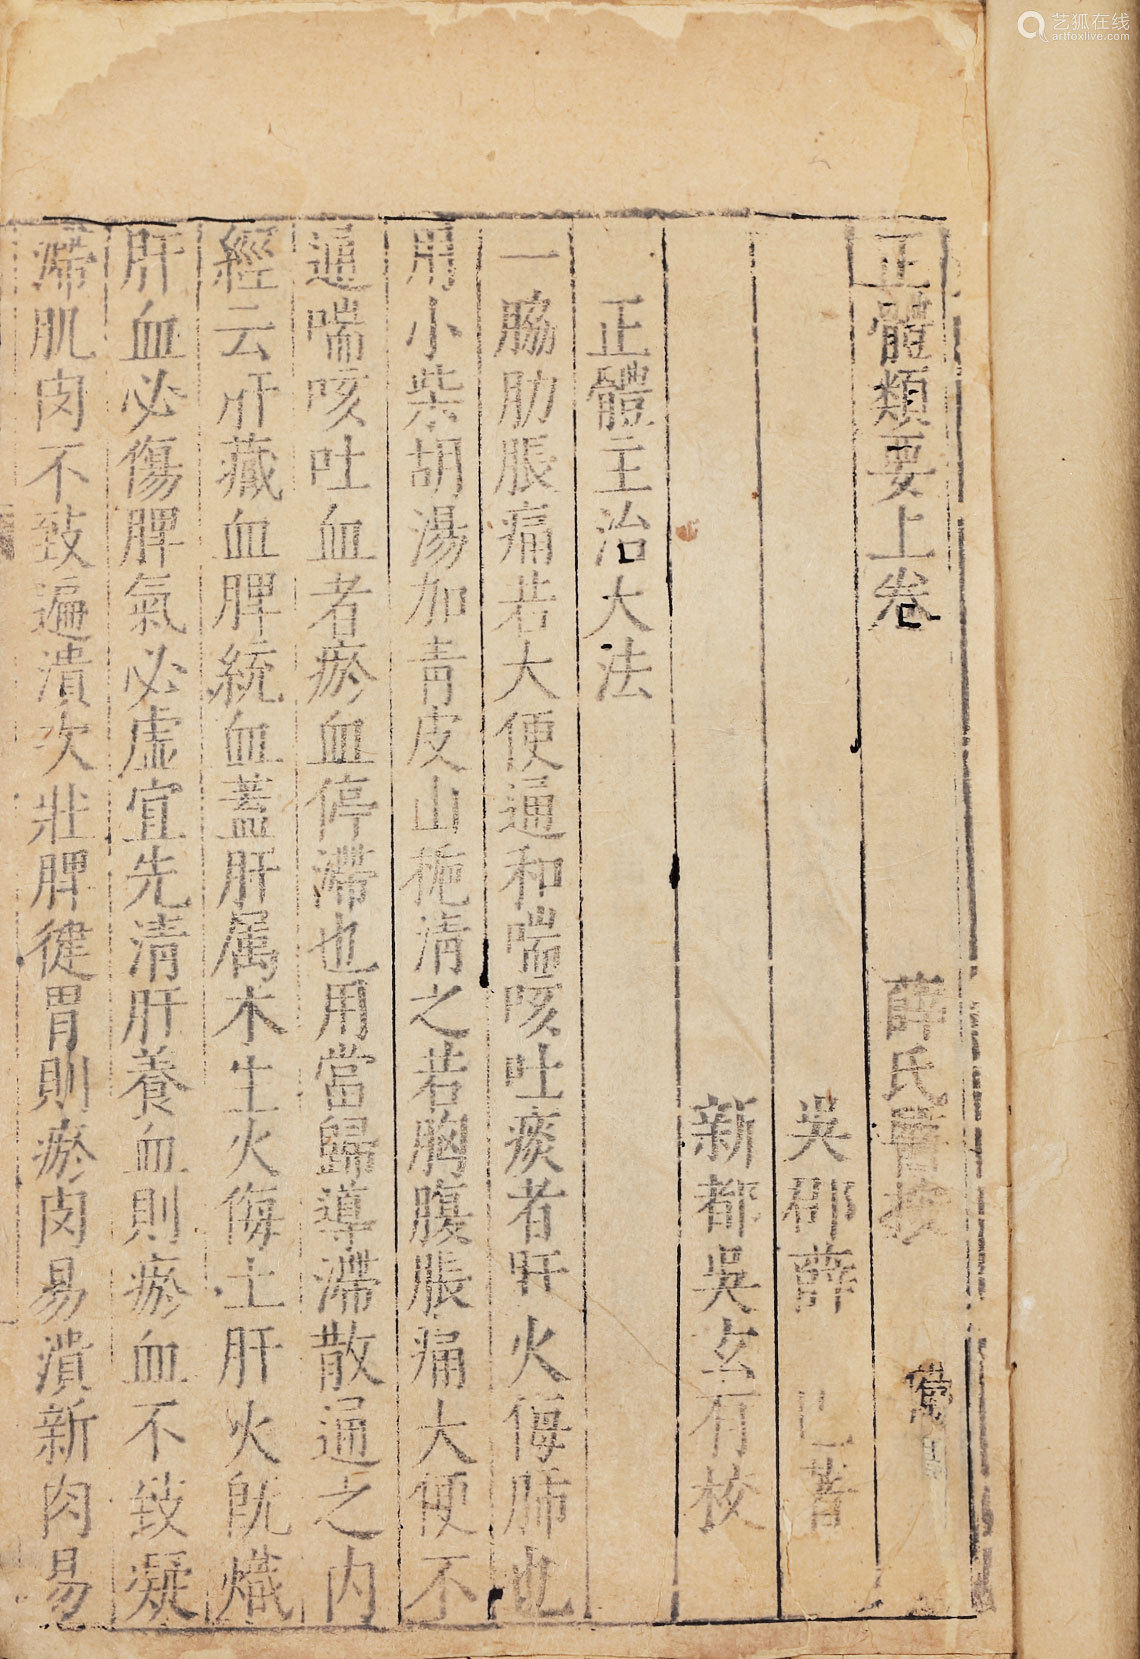 正體類要上卷 薛氏醫按
吳郡薛 己著
新都吳玄有校
正體主治大法
一脇肋脹痛若大便通和喘咳吐痰者肝火侮肺也
用小柴胡湯加青皮山梔清之若胸腹脹痛大便不
通喘咳吐血者瘀血停滯也用當歸導滯散通之内
經云肝藏血脾統血蓋肝属木生火侮土肝火旣熾
肝血必傷脾氣必虛宜先清肝養血則瘀血不致凝
滯肌肉不致遍潰次壯脾健胃則瘀肉易潰新肉易
艺狐在线
artfoxlive.com